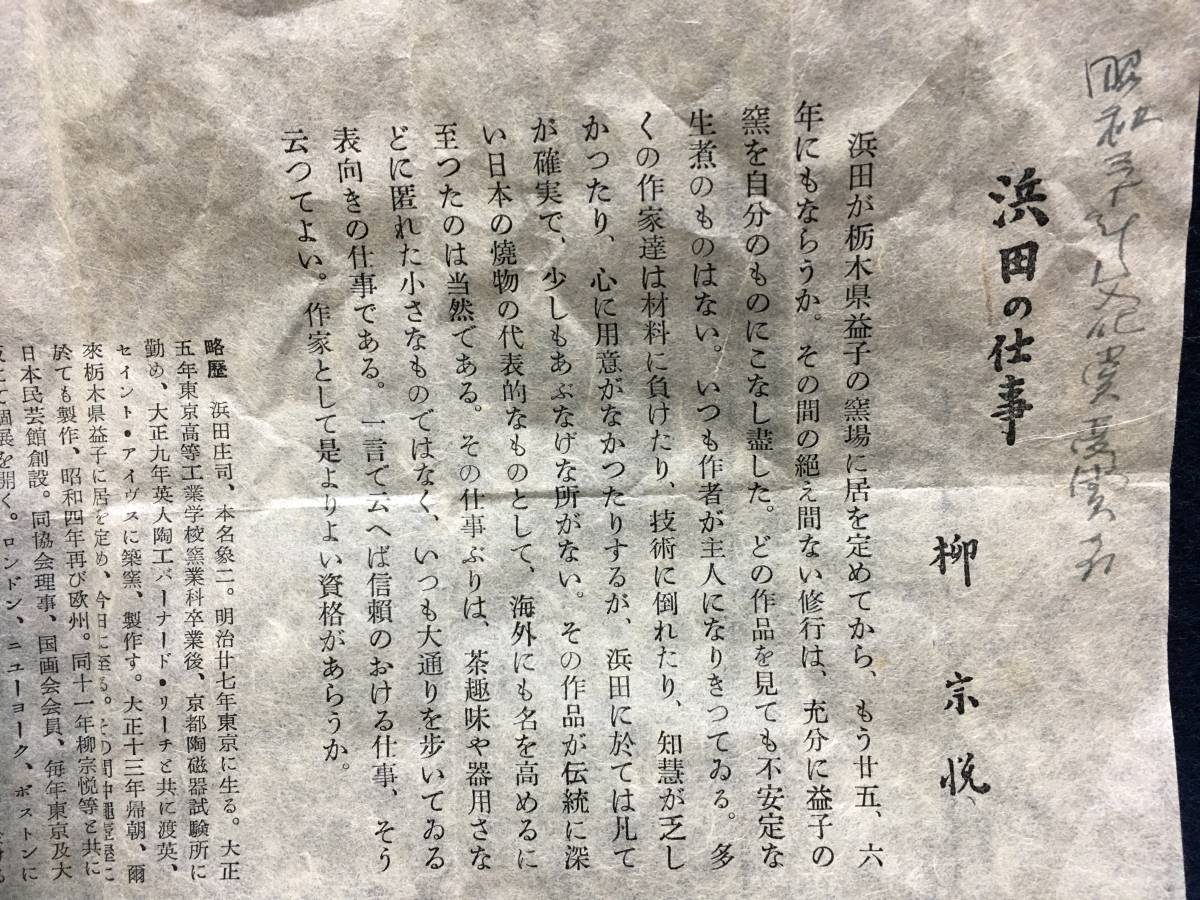 昭和
浜田の仕事
柳宗悦
浜田が栃木県益子の窯場に居を定めてから、もう廿五、六
年にもならうか。その間の絶え間ない修行は、充分に益子の
窯を自分のものにこなし盡した。どの作品を見ても不安定な
生煮のものはない。いつも作者が主人になりきつてゐる。多
くの作家達は材料に負けたり、技術に倒れたり、知慧が乏し
かつたり、心に用意がなかつたりするが、浜田に於ては凡て
が確実で、少しもあぶなげな所がない。その作品が伝統に深
い日本の燒物の代表的なものとして、海外にも名を高めるに
至つたのは当然である。その仕事ぶりは、茶趣味や器用さな
どに匿れた小さなものではなく、いつも大通りを歩いてゐる
表向きの仕事である。一言で云へば信頼のおける仕事、そう
云つてよい。作家として是よりよい資格があらうか。
略歴 浜田庄司、本名象二。明治廿七年東京に生る。大正
五年東京高等工業学校窯業科卒業後、京都陶磁器試験所に
勤め、大正九年英人陶工バーナード・リーチと共に渡英、
セイント・アイヴスに築窯、製作す。大正十三年帰朝、爾
來栃木県益子に居を定め、今日に至る。その間沖縄壺屋に
於ても製作、昭和四年再び欧州。同十一年柳宗悦等と共に
日本民芸館創設。同協会理事、国画会会員、毎年東京及大
阪にて個展を開く。ロンドン、ニューヨーク、ボストンに